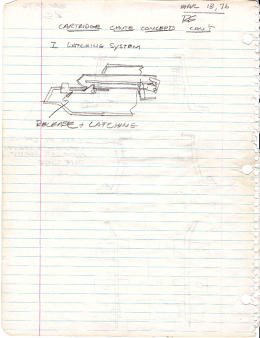 MAR 18, 76
CARTRIDGE CHUTE CONCEPTS CON'T
I LATCHING SYSTEM
RELEASE + LATCHING